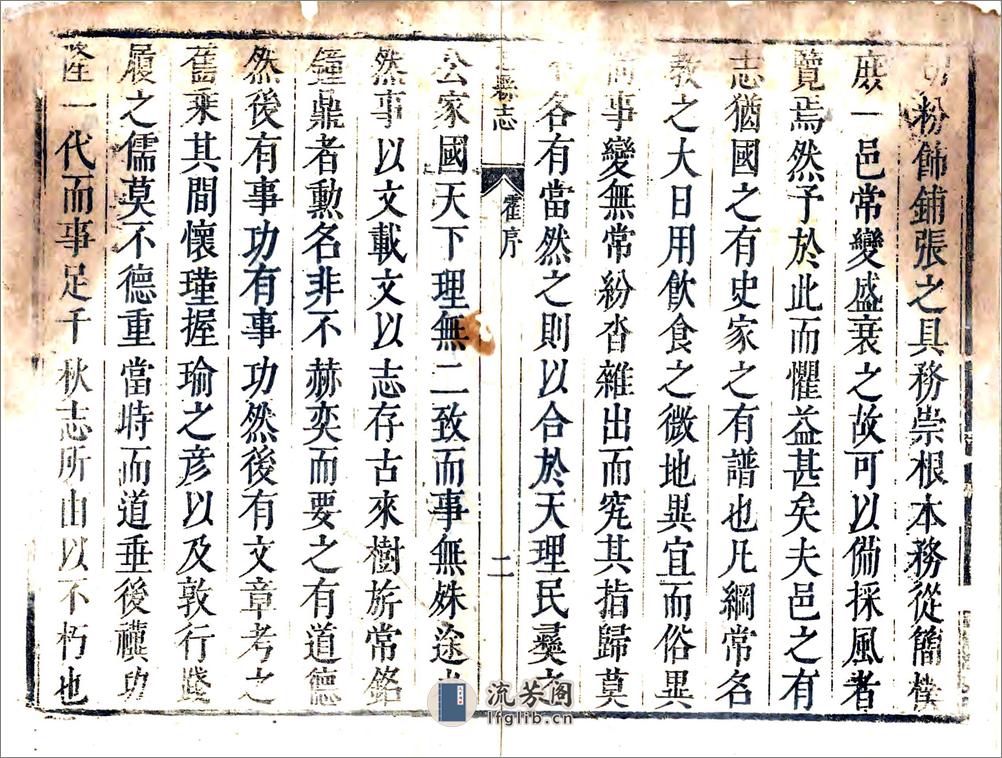 粉飾鋪張之具務崇根本務從簡樸
庶一邑常變盛衰之故可以備採風者
覽焉然予於此而懼益甚矣夫邑之有
志猶國之有史家之有譜也凡綱常名
教之大日用飲食之微地異宜而俗異
尚事變無常紛沓雜出而究其指歸莫
不各有當然之則以合於天理民彝之
縣志
霍序
二
公家國天下理無二致而事無殊途
然事以文載文以志存古來樹旂常銘
鐘鼎者勳名非不赫奕而要之有道德
然後有事功有事功然後有文章考之
舊乘其間懷瑾握瑜之彦以及敦行踐
履之儒莫不德重當時而道垂後禩功
隆一代而事足千秋志所由以不朽也
流芳阁
lfglib.cn